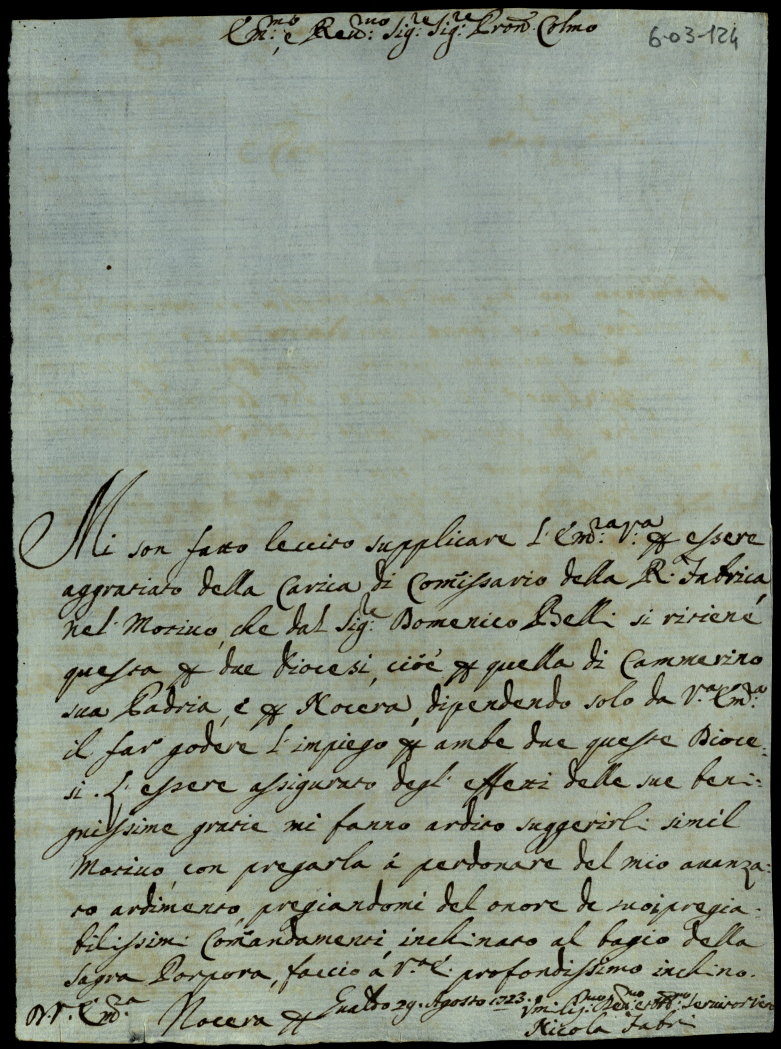 Em.mo e Rev.mo Sig.re Sig.re Pron. Colmo
6-03-124
Mi son fatto leccito supplicare l'Em.a V.a p essere
aggratiato della Carica di Comissario della R. Fabrica
nel Motivo, che dal Sig.e Domenico Belli si ritiene
questa p due Diocesi, cioè p quella di Cammerino
sua Padria, e p Nocera, dipendendo solo da V.a Em.a
il far godere l'impiego p ambe due queste Dioce-
si. L'essere assigurato degl'effetti delle sue beni-
gnissime gratie mi fanno ardito suggerirli simil
Motivo, con pregarla à perdonare del mio avanza-
to ardimento, pregiandomi del onore de suoi pregia-
bilissimi Comandamenti, inchinato al bagio della
Sagra Porpora, faccio à V.a E. profondissimo inchino.
D. V. Em.a
Nocera p Gualdo 29. Agosto 1723.
Um.o Servitor Vero
Nicola Fabri